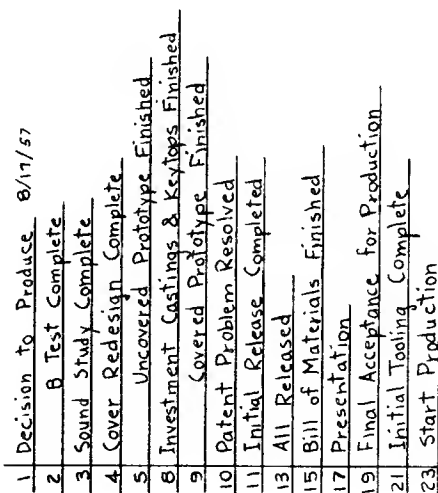 1 Decision to Produce 8/17/57
2 B Test Complete
3 Sound Study Complete
4 Cover Redesign Complete
5 Uncovered Prototype Finished
8 Investment Castings & Keytops Finished
9 Covered Prototype Finished
10 Patent Problem Resolved
11 Initial Release Completed
13 All Released
15 Bill of Materials Finished
17 Presentation
19 Final Acceptance for Production
21 Initial Tooling Complete
23 Start Production